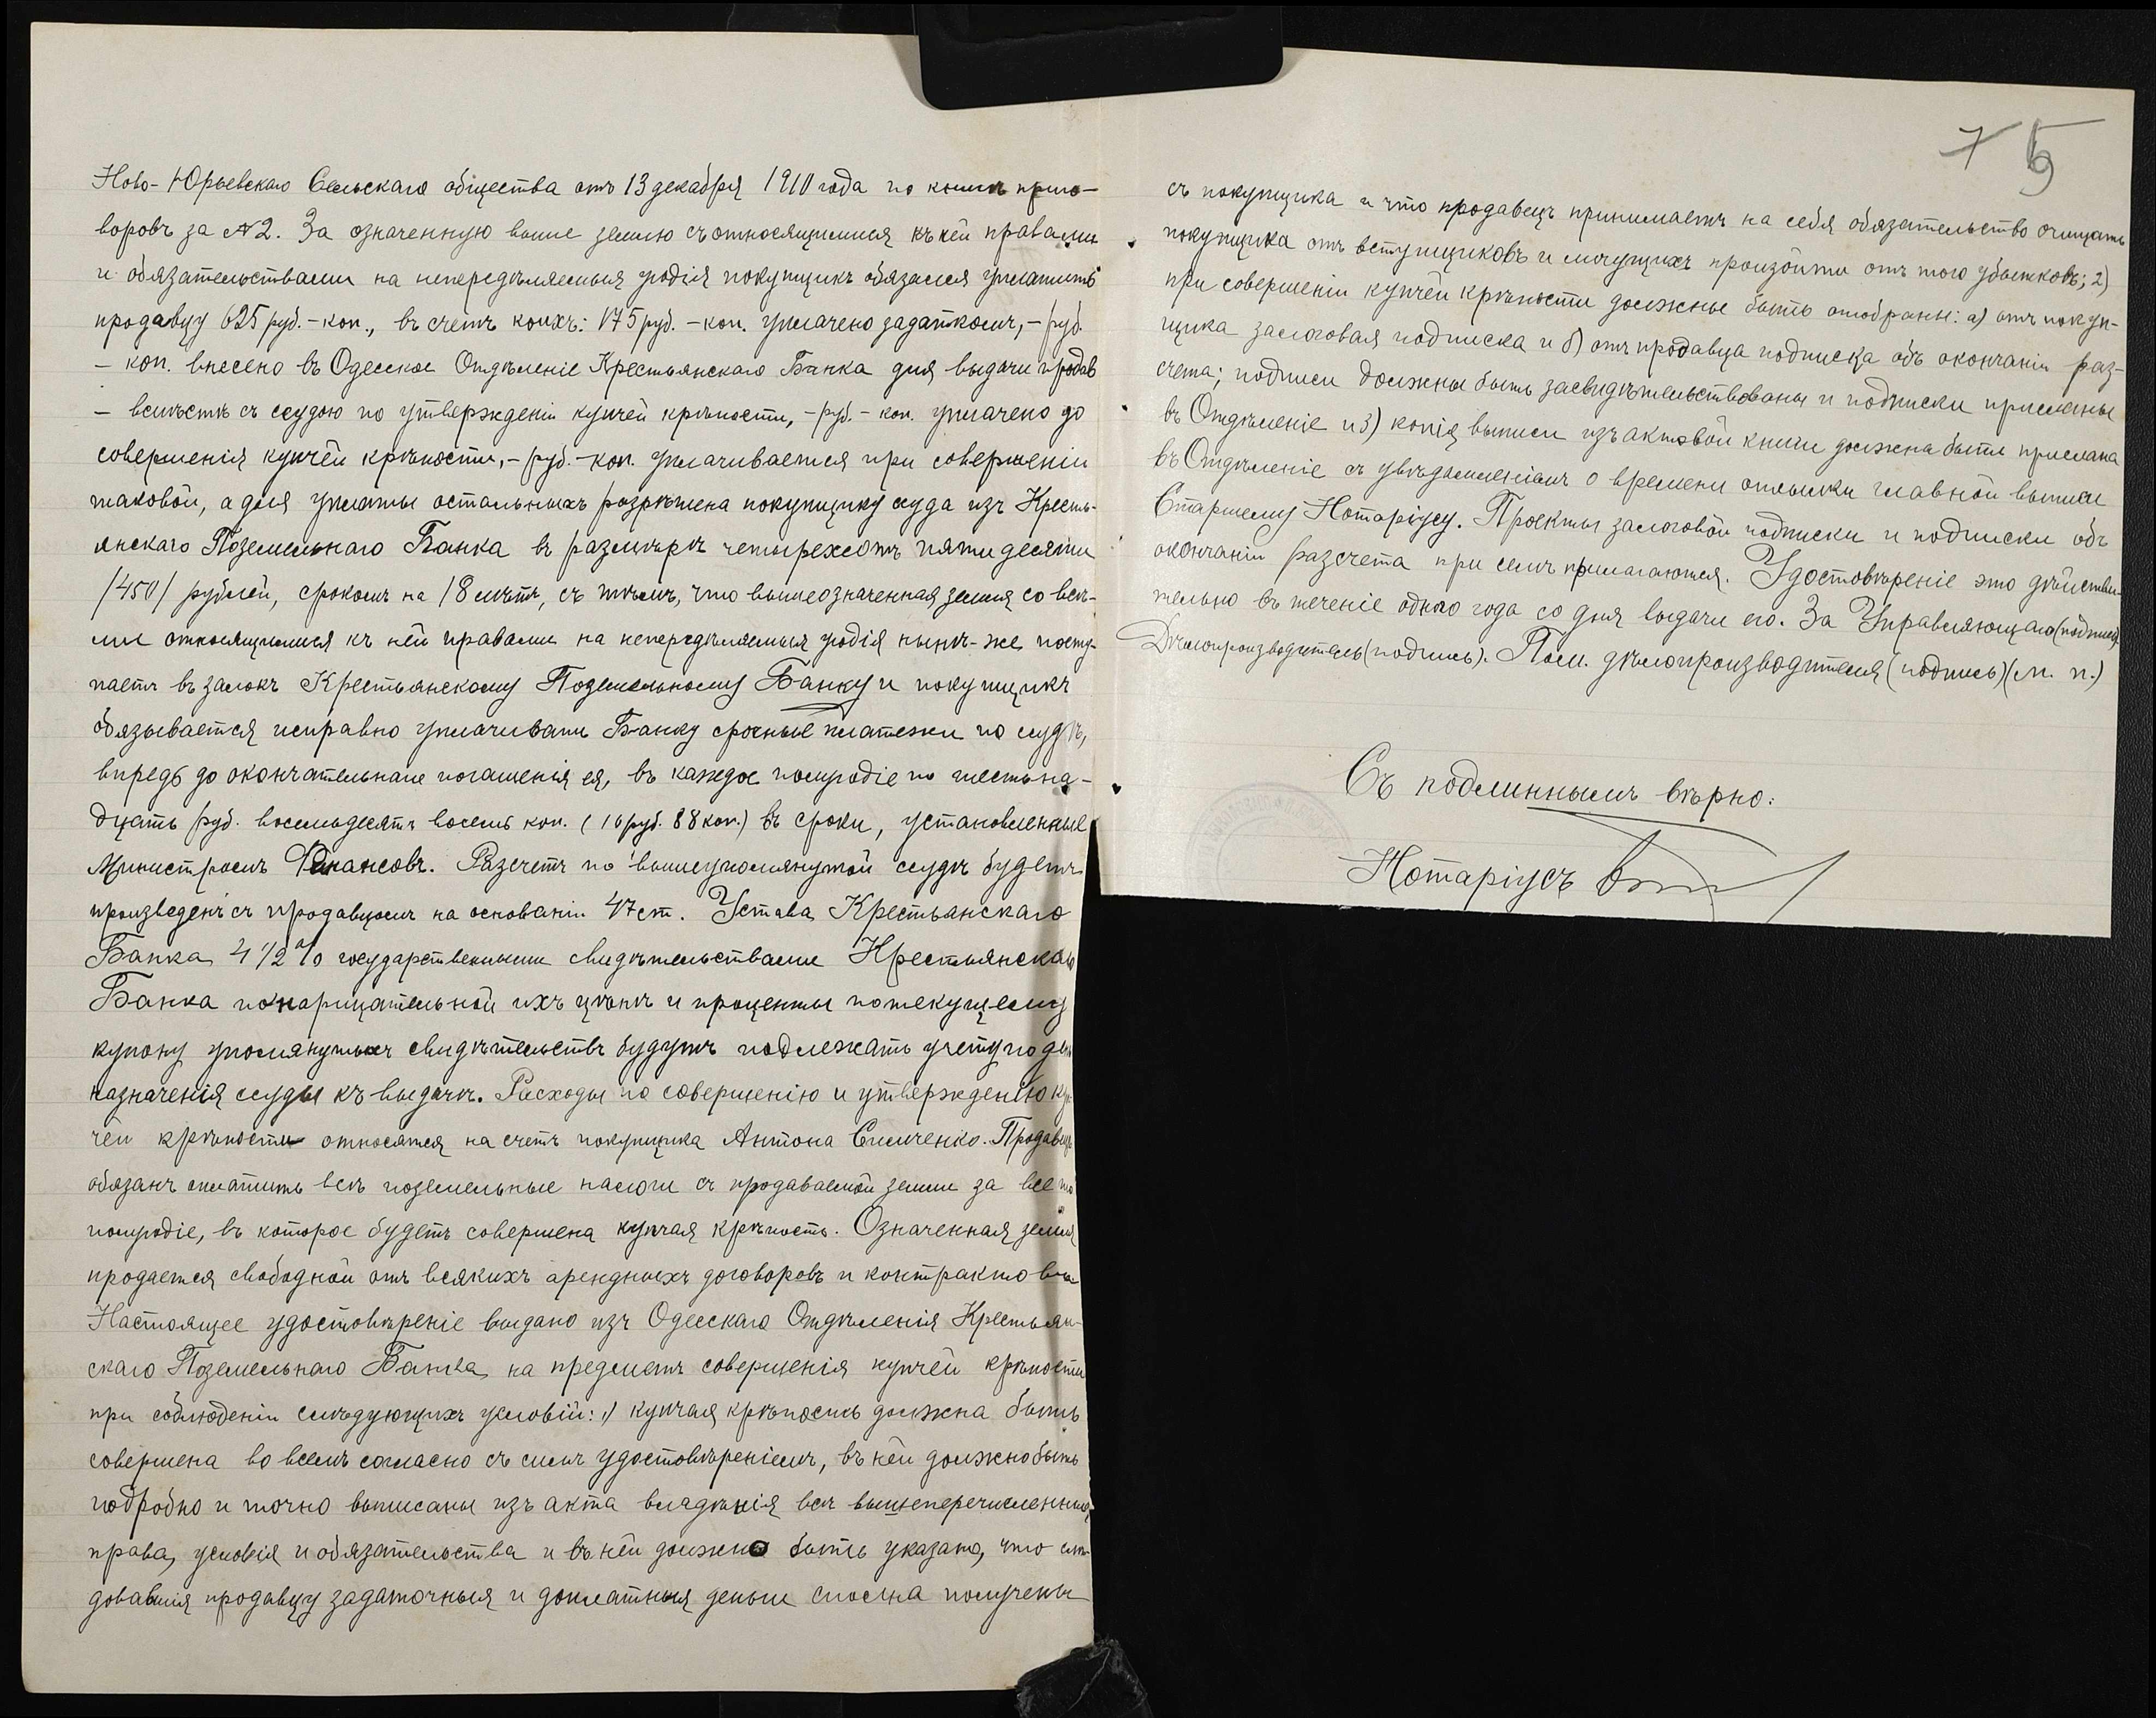 Ново-Юрьевскаго Сельскаго общества отъ 13 декабря 1910 года по книгѣ приго-
воровъ за №2. За означенную выше землю съ относящимися къ ней правами
и обязательствами на непередѣляемыя угодія покупщикъ обязался уплатить
продавцу 625 руб. - коп., въ счетъ коихъ: 175 руб. - коп. уплачено задаткомъ, - руб.
- коп. внесено въ Одесское Отдѣленіе Крестьянскаго Банка для выдачи продав
- вмѣстѣ съ ссудою по утвержденіи купчей крѣпости, - руб. - коп. уплачено до
совершенія купчей крѣпости, - руб. - коп. уплачивается при совершеніи
таковой, а для уплаты остальныхъ разрѣшена покупщику ссуда изъ Кресть-
янскаго Поземельнаго Банка въ размѣрѣ четырехсотъ пятидесяти
/450/ рублей, срокомъ на 18 лѣтъ, съ тѣмъ, что вышеозначенная земля со всѣ-
ми относящимися къ ней правами на непередѣляемыя угодія нынѣ-же посту-
паетъ въ залогъ Крестьянскому Поземельному Банку и покупщикъ
обязывается исправно уплачивать Банку срочные платежи по ссудѣ,
впредь до окончательнаго погашенія ея, въ каждое полугодіе по шестьна-
дцать руб. восемьдесятъ восемь коп. (16 руб. 88 коп.) въ сроки, установленные
Министромъ Финансовъ. Разсчетъ по вышеупомянутой ссудѣ будетъ
произведенъ съ продавцомъ на основаніи 47 ст. Устава Крестьянскаго
Банка 4 1/2 % государственными свидѣтельствами Крестьянскаго
Банка по нарицательной ихъ цѣнѣ и проценты по текущему
купону упомянутыхъ свидѣтельствъ будутъ подлежать учету по день
назначенія ссуды къ выдачѣ. Расходы по совершенію и утвержденію куп-
чей крѣпости относятся на счетъ покупщика Антона Симченко. Продавецъ
обязанъ оплатить всѣ поземельные налоги съ продаваемой земли за все то
полугодіе, въ которое будетъ совершена купчая крѣпость. Означенная земля
продается свободной отъ всякихъ арендныхъ договоровъ и контрактовъ
Настоящее удостовѣреніе выдано изъ Одесскаго Отдѣленія Крестьян-
скаго Поземельнаго Банка на предметъ совершенія купчей крѣпости
при соблюденіи слѣдующихъ условій: 1) купчая крѣпость должна быть
совершена во всемъ согласно съ симъ удостовѣреніемъ, въ ней должно быть
подробно и точно выписаны изъ акта владѣнія всѣ вышеперечисленныя
права, условія и обязательства и въ ней должно быть указано, что слѣ-
довавшія продавцу задаточныя и доплатныя деньги сполна получены
7 5 9
съ покупщика и что продавецъ принимаетъ на себя обязательство очищать
покупщика отъ вступщиковъ и могущихъ произойти отъ того убытковъ; 2)
при совершеніи купчей крѣпости должны быть отобраны: а) отъ покуп-
щика залоговая подписка и б) отъ продавца подписка объ окончаніи раз-
счета; подписи должны быть засвидѣтельствованы и подписки присланы
въ Отдѣленіе и 3) копія выписи изъ актовой книги должна быть прислана
въ Отдѣленіе съ увѣдомленіемъ о времени отсылки главной выписи
Старшему Нотаріусу. Проекты залоговой подписки и подписки объ
окончаніи разсчета при семъ прилагаются. Удостовѣреніе это дѣйстви-
тельно въ теченіе одного года со дня выдачи его. За Управляющаго (подпись).
Дѣлопроизводитель (подпись). Пом. дѣлопроизводителя (подпись) (м. п.)
Съ подлиннымъ вѣрно:
Нотаріусъ